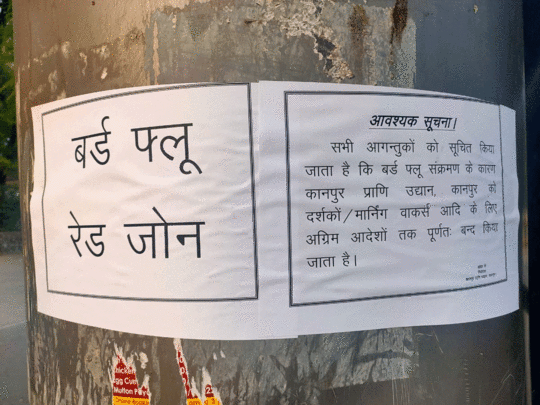 बर्ड फ्लू
रेड जोन
आवश्यक सूचना।
सभी आगन्तुकों को सूचित किया
जाता है कि बर्ड फ्लू संक्रमण के कारण
कानपुर प्राणि उद्यान, कानपुर को
दर्शकों/मार्निंग वाकर्स आदि के लिए
अग्रिम आदेशों तक पूर्णतः बन्द किया
जाता है।
Egg Curry
Mutton